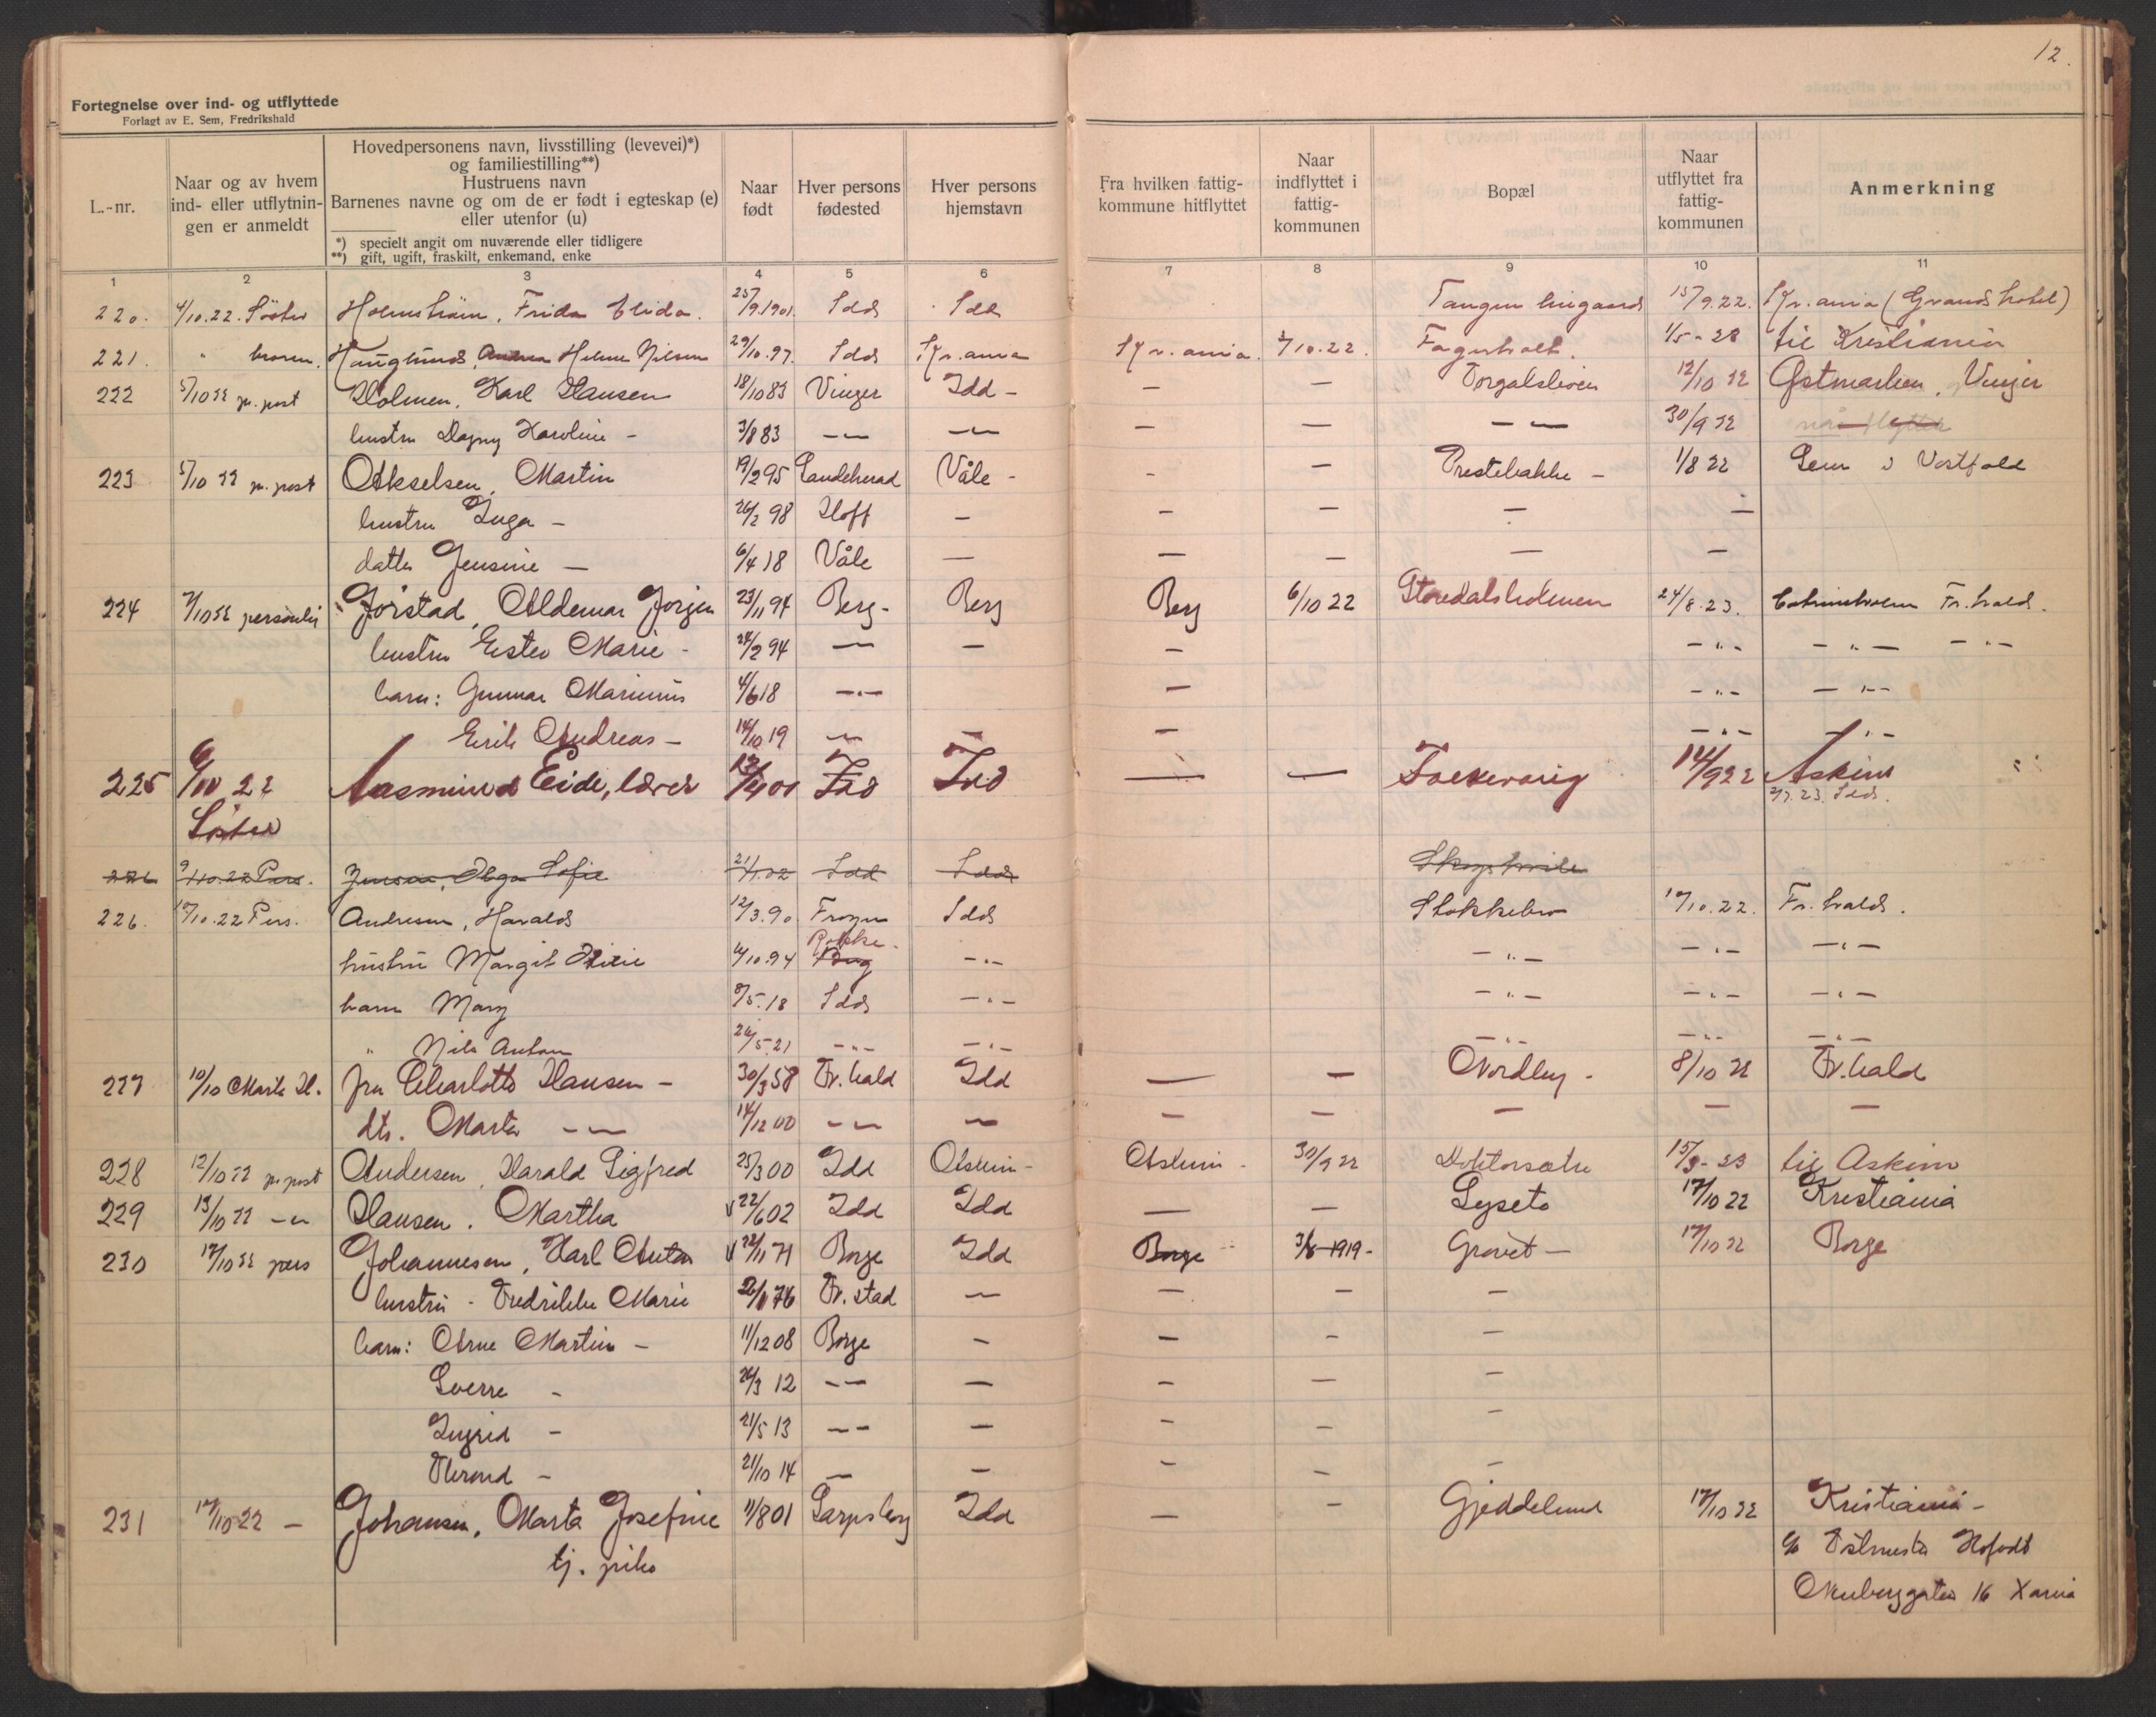 12.
Fortegnelse over ind- og utflyttede
Forlagt av E. Sem, Fredrikshald
L.-nr.
Naar og av hvem ind- eller utflytnin- gen er anmeldt
Hovedpersonens navn, livsstilling (levevei)*) og familiestilling**)
Hustruens navn
Barnenes navne og om de er født i egteskap (e) eller utenfor (u)
*) specielt angit om nuværende eller tidligere
**) gift, ugift, fraskilt, enkemand, enke
Naar født
Hver persons fødested
Hver persons hjemstavn
Fra hvilken fattig- kommune hitflyttet
Naar indflyttet i fattig- kommunen
Bopæl
Naar utflyttet fra fattig- kommunen
Anmerkning
1 2 3 4 5 6 7 8 9 10 11
220. 4/10.22. Søster Holmstrøm, Frida Elida. 25/9.1901. Idd Idd Tangen 15/9.22. Kr.ania (Grand hotel)
221. " broren. Hauglund, Helene Nilsen 29/10.97. Idd Kr.ania Kr.ania. /10.22. Fagerholt. 1/5-28 til Kristiania
222 5/10 22 pr. post Holmen, Karl Hansen 18/10 83 Vinger Idd - — — Torgalsbøen 12/10 22 Østmarken, Vinger
hustru Dagny Karoline - 3/8 83 — — — — — 30/9 22
223 5/10 22 pr. post Akselsen, Martin 19/2 95 Sandeherad Våle - - — Prestebakke - 1/8 22 Sem i Vestfold
hustru Inga - 26/2 98 Hoff — — — — —
datter Jensine — 6/4 18 Våle — — — — —
224 7/10 22 personlig Jørstad, Aldemar Jørgen 23/11 94 Berg- Berg Berg 6/10 22 Storedalsledemen 24/8.23. Catrineholm Fr.hald.
hustru Ester Marie - 24/2 94 — — — -"- -"- -"-
barn: Gunnar Marinius 4/6 18 -"- — -"- -"-
Erik Andreas - 14/10 19 — — — -"- -"-
225 6/10 22 Aasmund Eide, lærer 13/4 00 Idd Idd — — Folkevang 14/9 22 Askim
Søster 2/7.23. Idd.
226 9/10.22 Pers. Jensen, Olga Sofie 21/1.02 Idd Idd Skogshvile
226. 10/10.22 Pers. Andresen, Harald 12/3.90 Frogn Idd Stokkebro 10/10.22. Fr.hald.
Rokke.
hustru Margit 4/10.94 Berg -"- -"- -"- -"-
barn Mary 9/5.18 Idd -"- -"- -"- -"-
" Nils Anton 24/5.21 -"- -"- -"- -"- -"-
227 10/10 Marta H. fru Charlotte Hansen - 30/3 58 Fr.hald Idd — — Nordby - 8/10 22 Fr.hald
dtr. Marta — 14/12 00 — — — — — — —
228 12/10 22 pr. post Andersen, Harald Sigfred 25/3 00 Idd Askim - Askim - 30/9 22 Doktorsætre 15/3-23 til Askim
229 13/10 22 — Hansen, Martha v 22/6 02 Idd Idd — — Lyseto 17/10 22 Kristiania
230 17/10 22 pers Johannesen, Karl Anton v 22/11 71 Borge Idd Borge 3/8-1919- Grovet — 17/10 22 Borge
hustru - Fredrikke Marie 26/1 76 Fr.stad — — — —
barn: Arne Martin - 11/12 08 Borge - — - —
Sverre - 26/3 12 — — — — -
Ingrid - 21/5 13 — — - — -
Thrond - 21/10 14 — — - — -
231 17/10 22 — Johansen, Marta Josefine 11/8 01 Sarpsborg Idd — - Gjeddelund 17/10 22 Kristiania -
tj. pike
c/o Hofodt
16 Xania